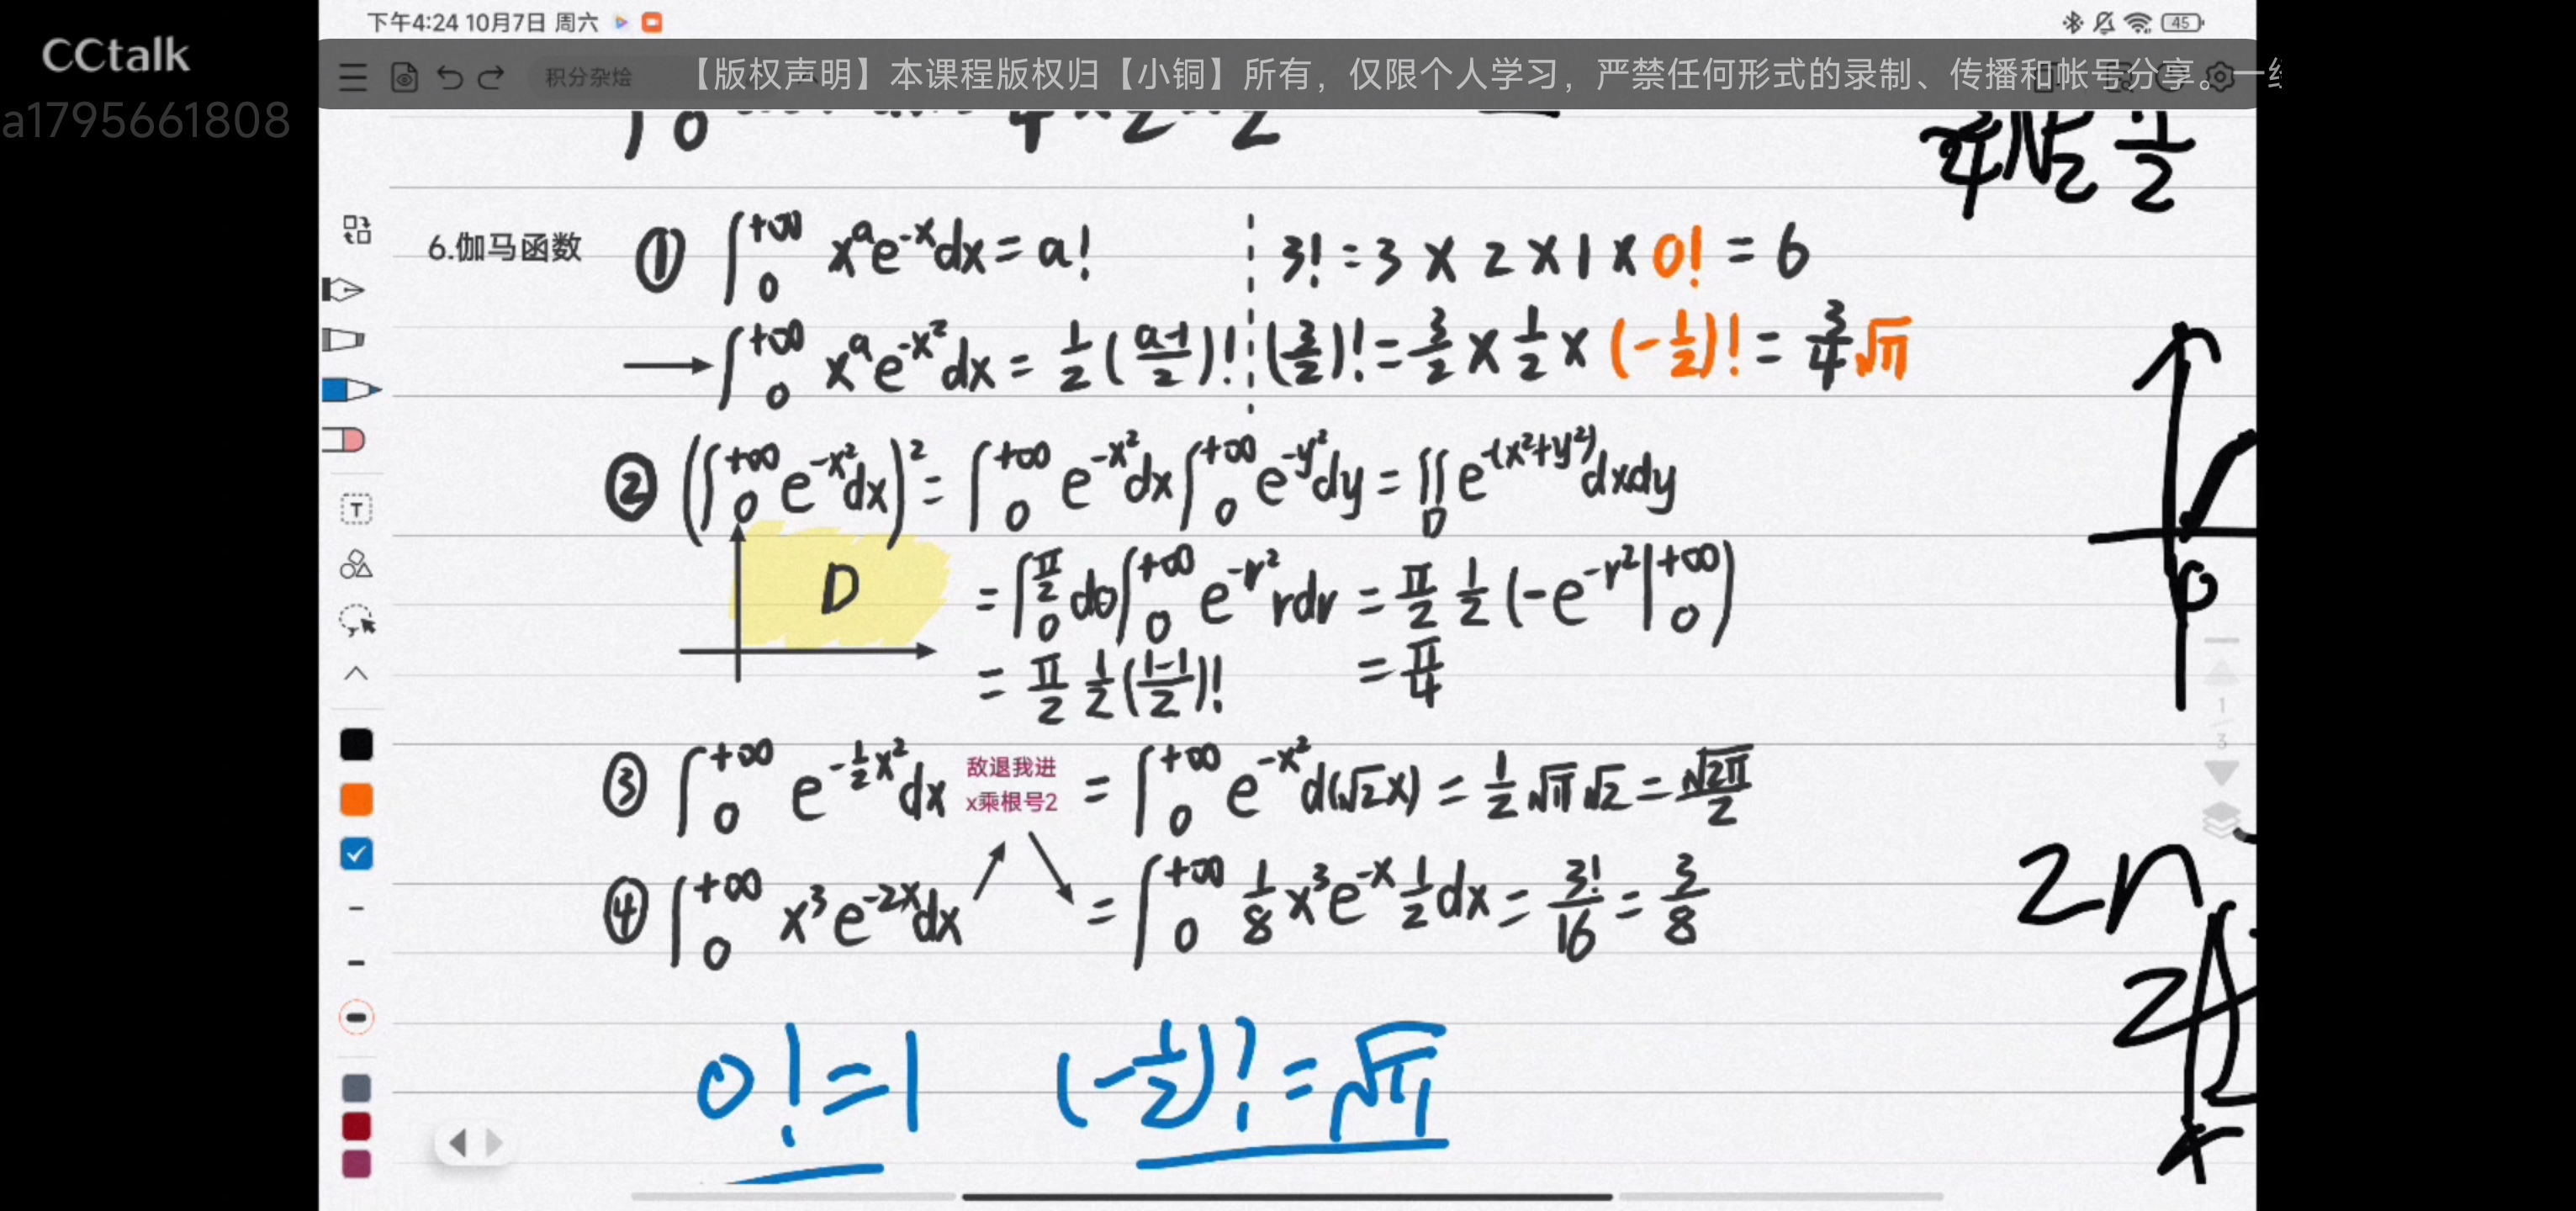 下午4:24 10月7日 周六
45
CCtalk
a1795661808
积分杂烩
【版权声明】本课程版权归【小铜】所有，仅限个人学习，严禁任何形式的录制、传播和帐号分享。一经
6.伽马函数
① ∫₀^{+∞} xᵃe^{-x}dx = a!
3! = 3 × 2 × 1 × 0! = 6
→ ∫₀^{+∞} xᵃe^{-x²}dx = 1/2 ((a-1)/2)!
(3/2)! = 3/2 × 1/2 × (-1/2)! = 3/4 √π
② (∫₀^{+∞} e^{-x²}dx)² = ∫₀^{+∞} e^{-x²}dx ∫₀^{+∞} e^{-y²}dy = ∬_D e^{-(x²+y²)}dxdy
D
= ∫₀^{π/2} dθ ∫₀^{+∞} e^{-r²}rdr = π/2 1/2 (-e^{-r²}|₀^{+∞})
= π/2 1/2 ((1-1)/2)! = π/4
③ ∫₀^{+∞} e^{-1/2 x²}dx
敌退我进
x乘根号2
= ∫₀^{+∞} e^{-x²}d(√2x) = 1/2 √π √2 = √2π/2
④ ∫₀^{+∞} x³e^{-2x}dx = ∫₀^{+∞} 1/8 x³e^{-x} 1/2 dx = 3!/16 = 3/8
0! = 1
(-1/2)! = √π
1
3
T